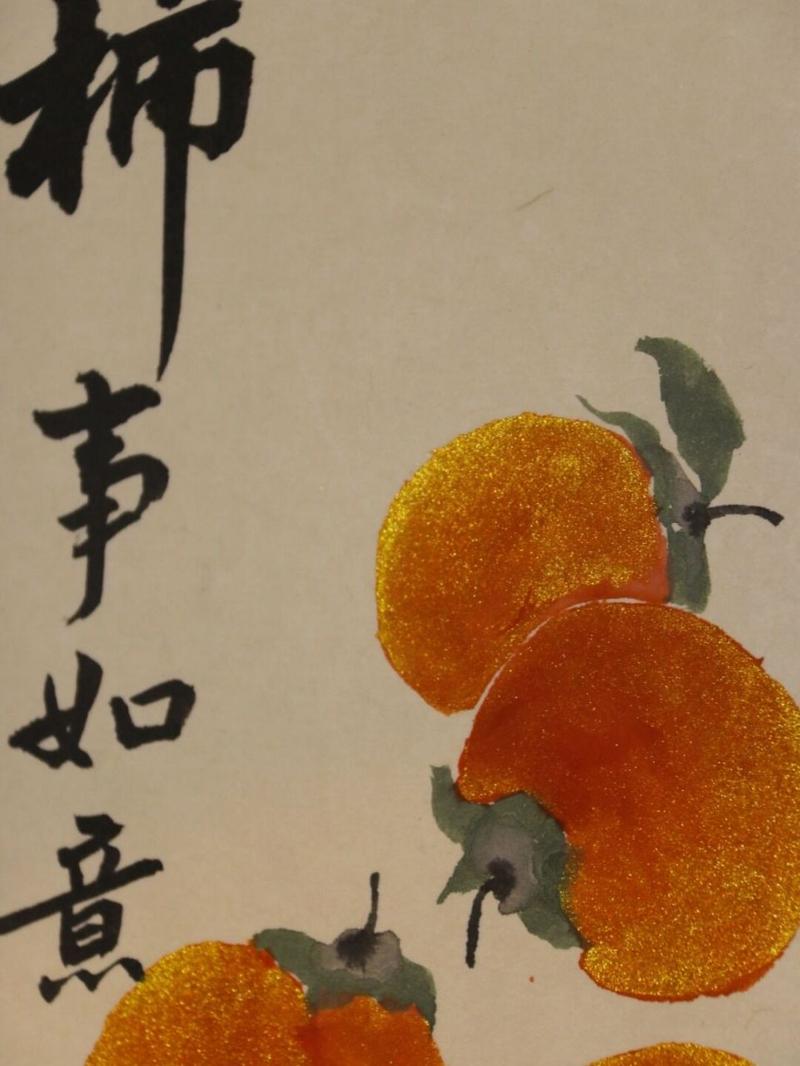 柿事如意